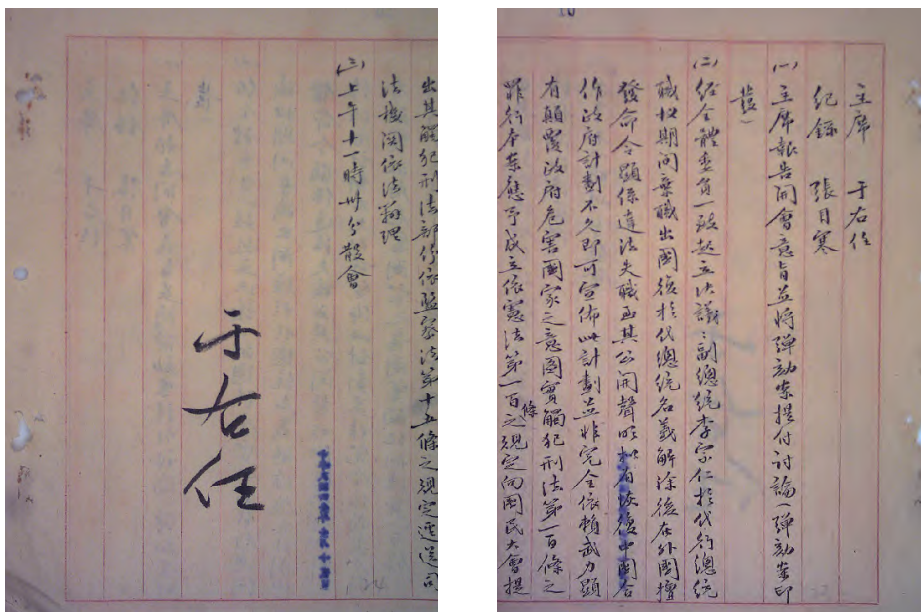 主席　于右任
紀錄　張目寒
(一)主席報告開會意旨並將彈劾案提付討論(彈劾案印
發)
(二)經全體委員一致起立決議：副總統李宗仁於代行總統
職权期间棄職出國復於代總統名義解除後在外國擅
發命令顯係違法失職而其公開聲明如有恢復由國合
作政府計劃不久即可宣佈此計劃並非完全依賴武力顯
有顛覆政府危害國家之意圖實觸犯刑法第一百條之
罪行本案應予成立依憲法第一百條之規定向國民大會提
出其觸犯刑法部份依監察法第十五條之規定逕送司
法機関依法辦理
(三)上午十一時卅分散會
于右任
22